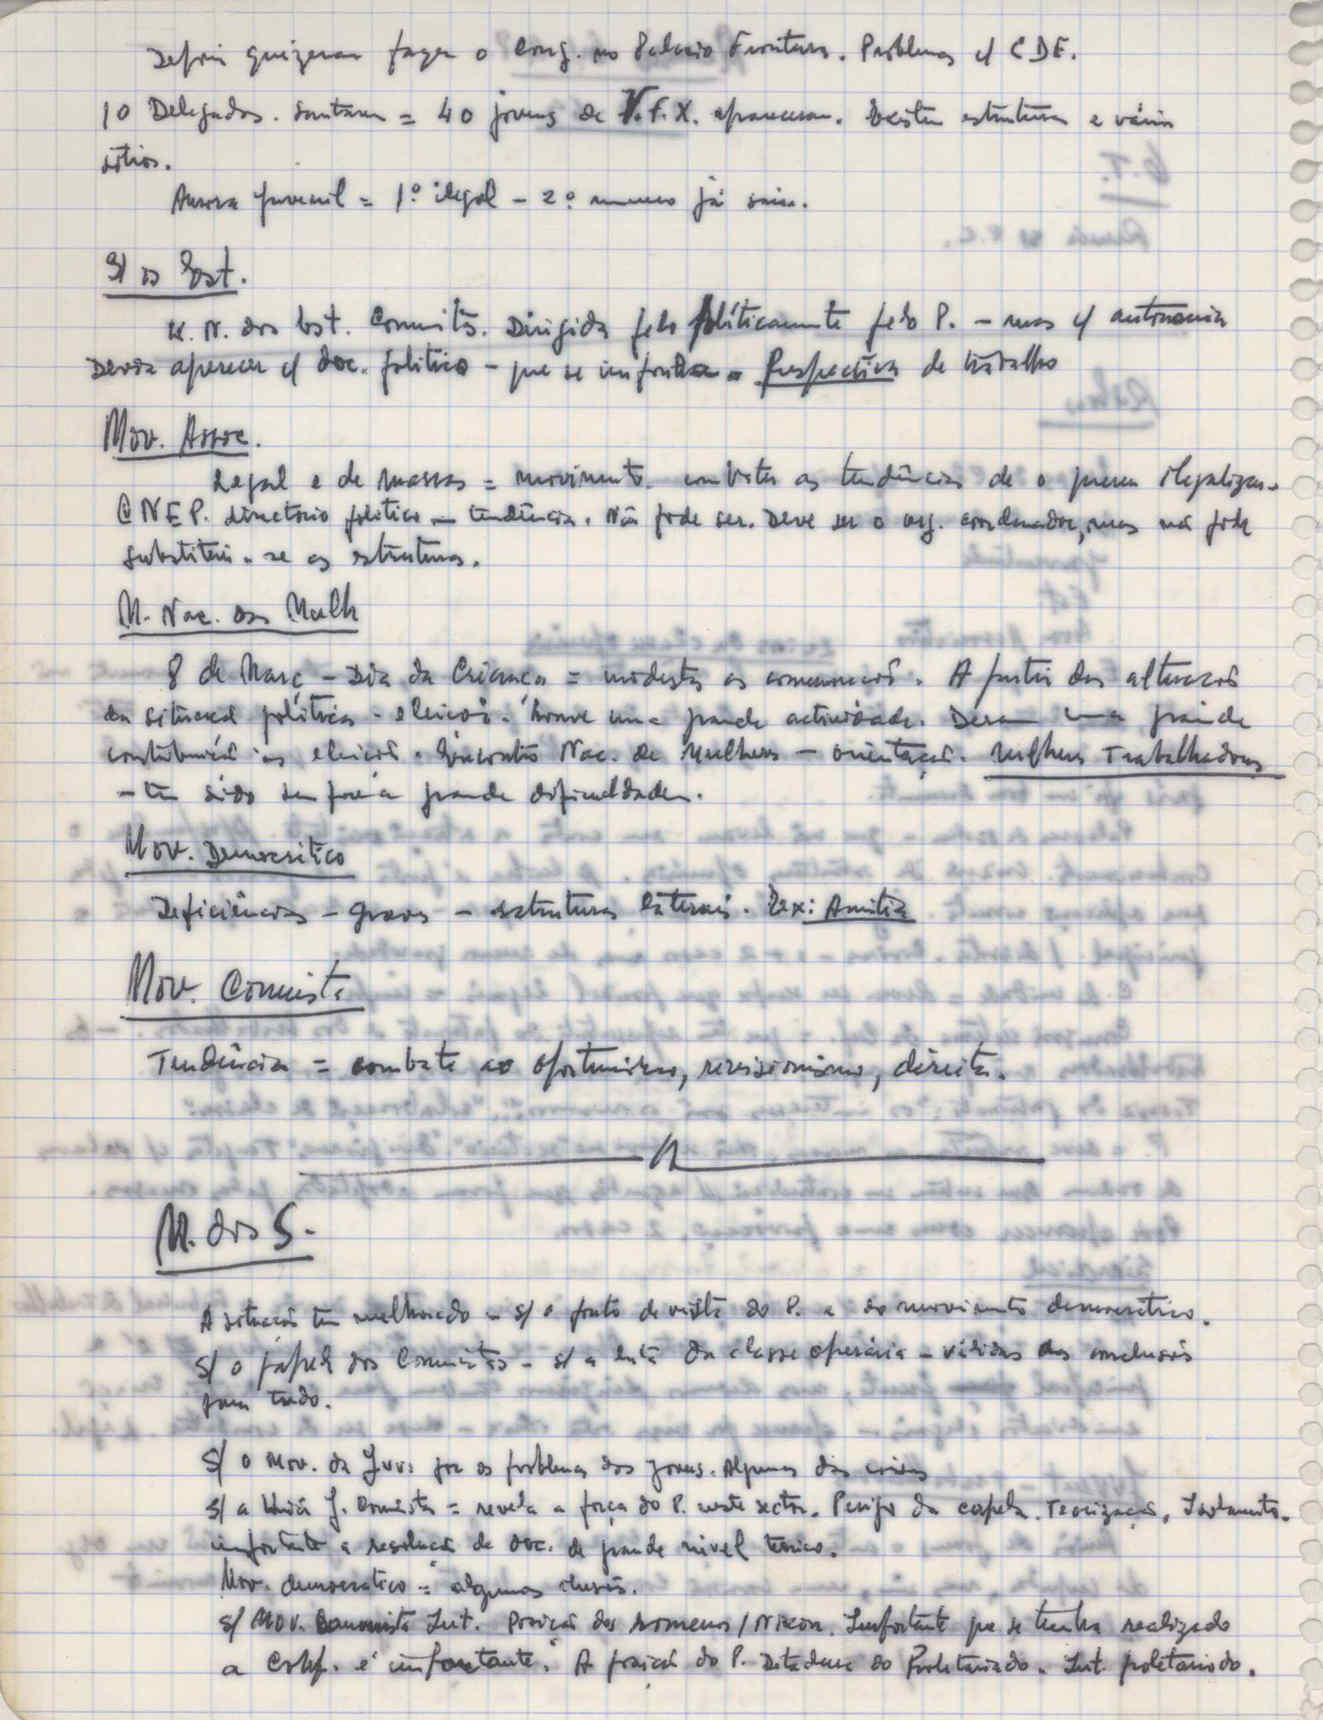 Depois quizeram fazer o Cong. no Palacio Fronteira. Problemas c/ CDE.
10 Delegados. Santarem = 40 jovens de V.F.X. apareceram. Existem estruturas e vários
sítios.
Aurora Juvenil = 1º ilegal - 2º numero já saiu.
S/ os Est.
N. dos Est. Comunistas. Dirigida pelo políticamente pelo P. - mas c/ autonomia
Devia aparecer c/ doc. politico - que se imponha a Perspectiva de trabalho
Mov. Assoc.
Legal e de massas = movimento. combater as tendências de o querer ilegalizar.
CNEP. directorio politico - tendência. Não pode ser. Deve ser o org. coordenador, mas não pode
substituir-se as estruturas.
M. Nac. das Mulh
8 de Març - Dia da Criança = modestas as comemorações. A partir das alterações
da situação política - eleições. Houve uma grande actividade. Deram uma grande
contribuição às eleições. Encontro Nac. de Mulheres - orientação. Mulheres Trabalhadoras
- tem sido sempre a grande dificuldade.
Mov. Democrático
Deficiências - graves - estruturas laterais. Ex: Amitia
Mov. Comunista
Tendência = combate ao oportunismo, revisionismo, direita.
M. dos S.
A situação tem melhorado - s/ o ponto de vista do P. e do movimento democrático.
S/ o papel dos Comunistas - s/ a luta da classe operária - válidas as conclusões
para tudo.
S/ o Mov. da Juv: os problemas dos jovens. Algumas das coisas
S/ a União J. Comunista = revela a força do P. neste sector. Perigo da capela. Teorização, Isolamento.
importante a resolução de doc. de grande nivel teorico.
Mov. democratico = algumas
S/ Mov. Comunista Int. Posição dos romenos / Nixon. Importante que se tenha realizado
a Conf. é importante. A posição do P. Ditadura do Proletariado. Int. proletariado.